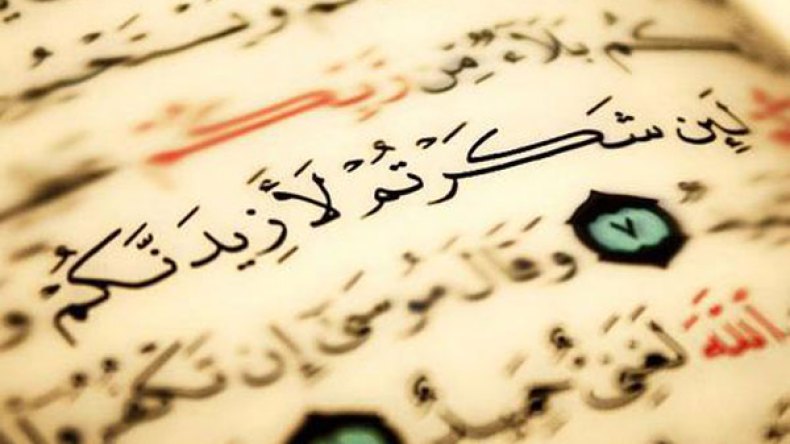 وَيَسْتَحْيُونَ
كُم بَلَاءٌ مِّن رَّبِّكُمْ
لَئِن شَكَرْتُمْ لَأَزِيدَنَّكُمْ
٧ وَقَالَ مُوسَىٰ إِن تَكْفُرُوا
اللَّهَ لَغَنِيٌّ حَمِيدٌ